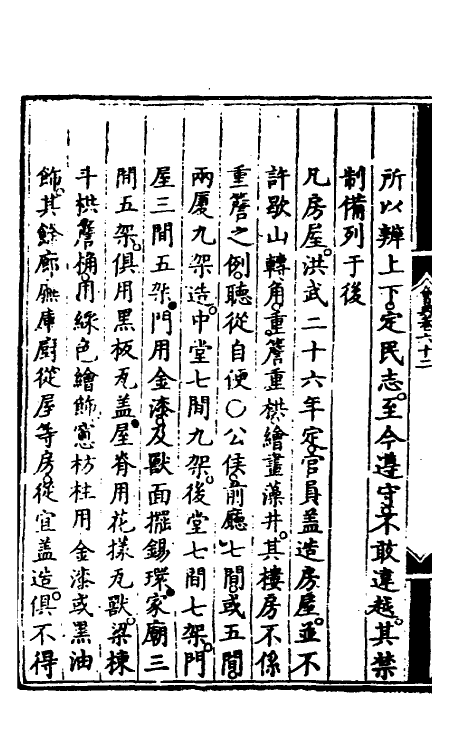 所以辨上下。定民志。至今遵守。不敢違越。其禁
制備列于後
凡房屋。洪武二十六年定。官員蓋造房屋。並不
許歇山轉角。重簷重栱。繪畫藻井。其樓房不係
重簷之例。聽從自便○公侯。前廳七間。或五間。
兩廈九架造。中堂七間九架。後堂七間七架。門
屋三間五架。門用金漆。及獸面擺錫環。家廟三
間五架。俱用黑板瓦蓋。屋脊用花樣瓦獸。梁棟
斗栱簷桷。用綵色繪飾。窻枋柱用金漆或黑油
飾。其餘廊廡庫廚從屋等房。從宜蓋造。俱不得
會典卷六十二